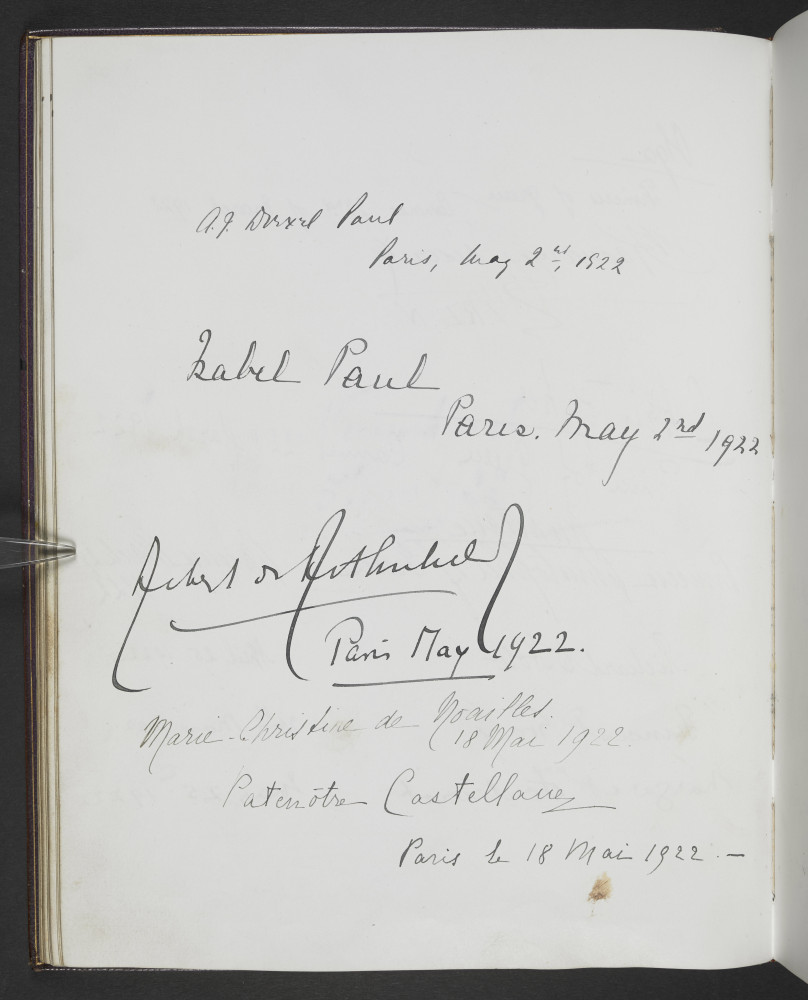 A. J. Drexel Paul
Paris, May 2nd, 1922
Isabel Paul
Paris. May 2nd 1922
Robert de Rothschild
Paris May 1922.
Marie-Christine de Noailles.
18 Mai 1922.
Patenôtre Castellane
Paris le 18 Mai 1922. –